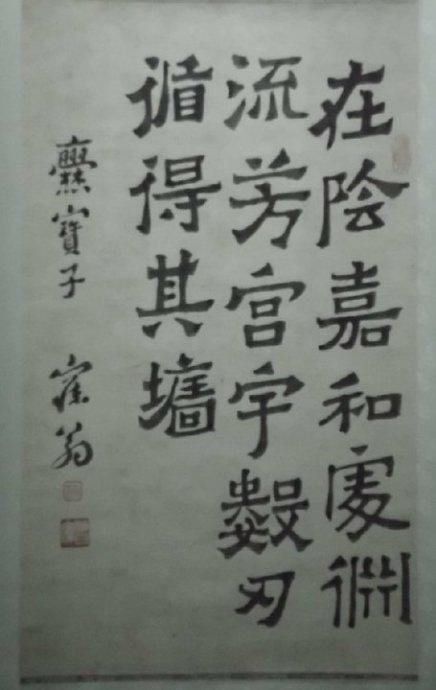 在陰嘉和處淵
流芳宫宇數刃
循得其墻
爨寶子 寐翁